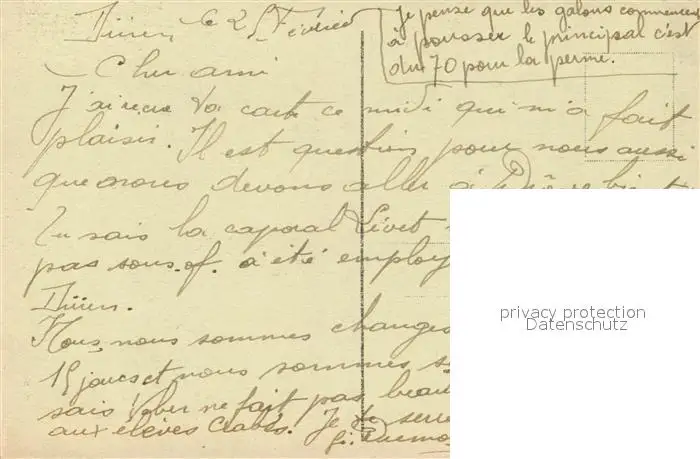 Düren, le 25 Février
Je pense que les galons commencent
à pousser le principal c'est
du 70 pour la perme.
Cher ami
J'ai reçu ta carte ce midi qui m'a fait
plaisir. Il est question pour nous aussi
que nous devons aller à
Tu sais la caporal Livet
pas sous.of. a été employ
Düren.
Nous, nous sommes changés
15 jours et nous sommes
sais ne fait pas beau
aux élèves Crabes. Je te serre
privacy protection
Datenschutz